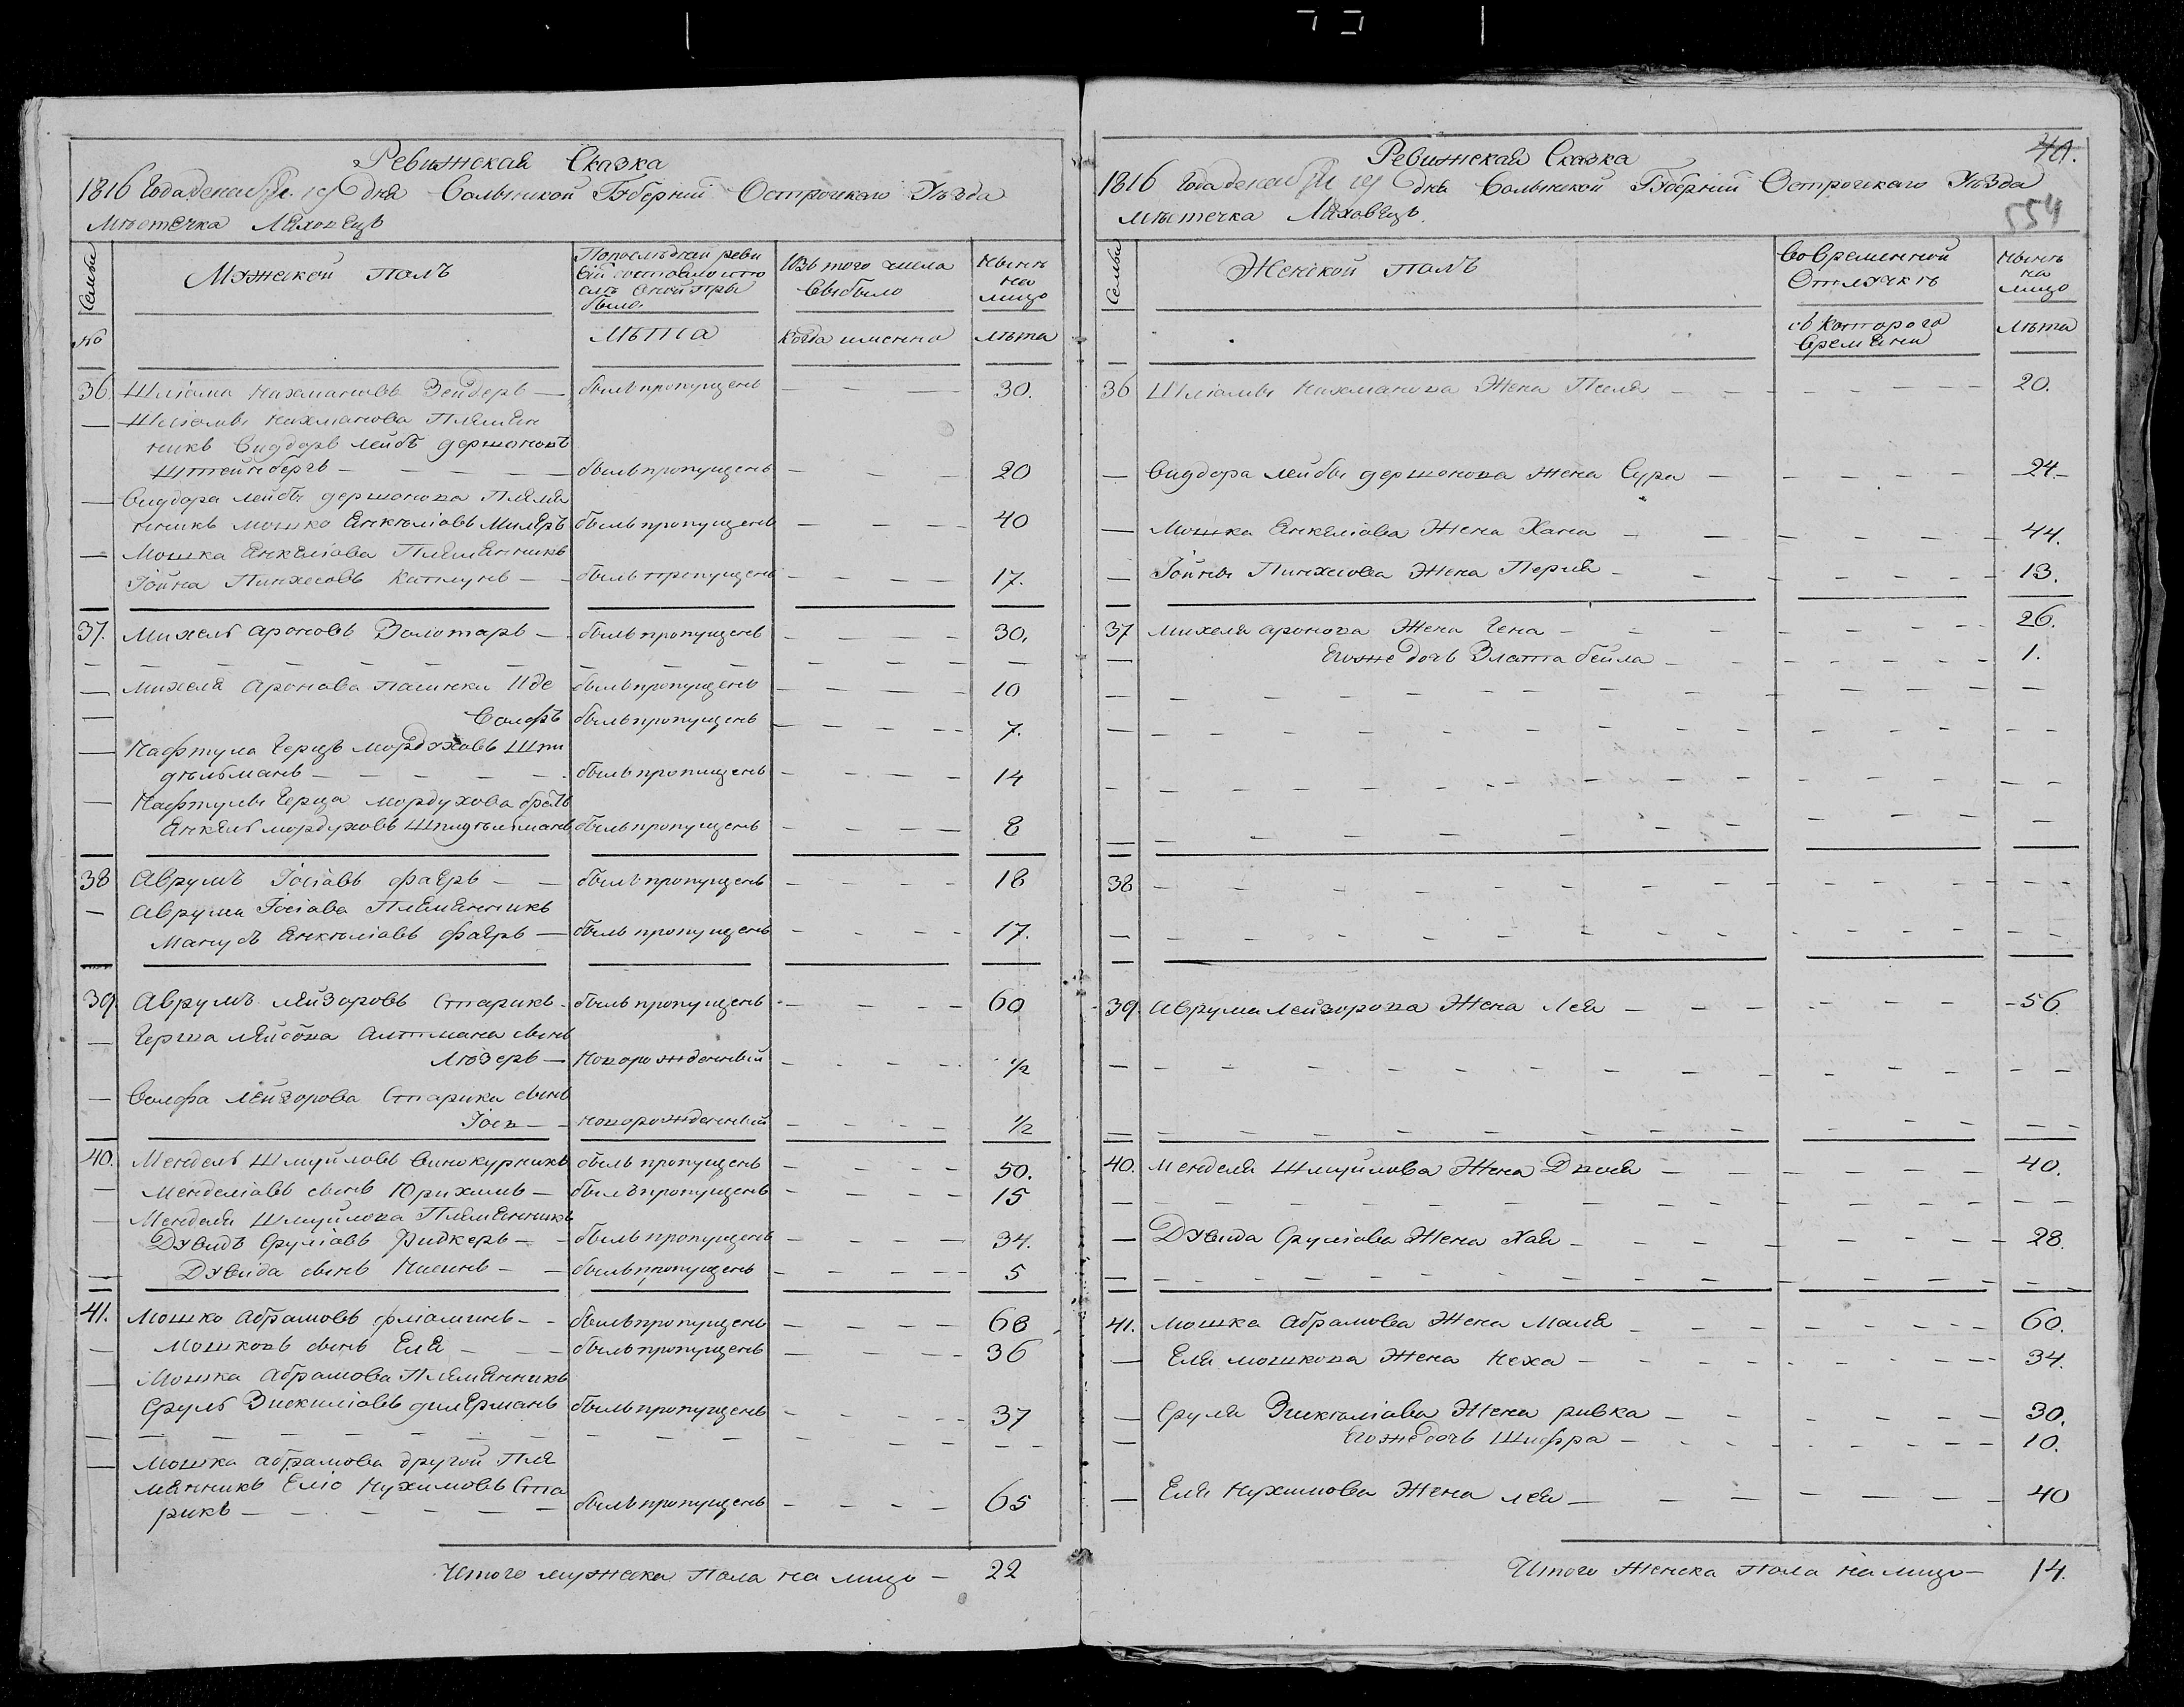 Ревижская Сказка
1816 Года декабря дня Волынской Губерний Острогского Уѣзда
Мѣстечка Ляховецъ
Семьи
Мужеской полъ
По последней реви
зій состояло и по
слѣ оной при
было
Изъ того числа
выбыло
Нынѣ
на
лицо
№
Лѣта
Когда именно
Лѣта
36. Шлiома Нахмановъ Зейдеръ — былъ пропущенъ — — 30.
— Шлiомы Нахманова Племян
никъ Видоръ Лейбъ Гершоновъ
Штейнбергъ — былъ пропущенъ — — 20
— Видора Лейбы Гершонова Племя
нникъ Мошко Енкелiовъ Милеръ былъ пропущенъ — — 40
— Мошка Енкелiова Племянникъ
Іойна Пинхесовъ — былъ пропущенъ — — 17.
37. Михель Ароновъ Золотаръ — былъ пропущенъ — — 30.
— Михеля Аронова пасинки Иде былъ пропущенъ — — 10
— Волфъ былъ пропущенъ — — 7.
— Нафтула Герцъ Мордуховъ Шпи
дѣльманъ — былъ пропущенъ — — 14
— Нафтулы Герца Мордухова братъ
Енкель Мордуховъ Шпидѣльманъ былъ пропущенъ — — 8
38 Аврумъ Іосiовъ Фаеръ — былъ пропущенъ — — 18
— Аврума Іосiова Племянникъ
Манусъ Енкелiовъ Фаеръ — былъ пропущенъ — — 17.
39. Аврумъ Лейзоровъ Старикъ — былъ пропущенъ — — 60
— Герша Лейбова Алтмана сынъ
Люзеръ — Новорожденный — — 1/2
— Волфа Лейзорова Старика сынъ
Іось — новорожденный — — 1/2
40. Мендель Шмуйловъ Винокурникъ былъ пропущенъ — — 50.
— Менделiовъ сынъ Юрихимъ — былъ пропущенъ — — 15
— Менделя Шмуйлова Племянникъ
Дувидъ Срулiовъ Ридкеръ — былъ пропущенъ — — 34.
— Дувида сынъ Нисинъ — былъ пропущенъ — — 5
41. Мошко Абрамовъ — былъ пропущенъ — — 68
— Мошковъ сынъ Еля — былъ пропущенъ — — 36
— Мошка Абрамова Племянникъ
Сруль Зискилiовъ Дилерманъ былъ пропущенъ — — 37
— Мошка Абрамова другой Пле
мянникъ Елiо Нухимовъ Ста
рикъ — былъ пропущенъ — — 65
Итого мужеска пола на лицо — 22
40.
Ревижская Сказка
1816 Года декабря дня Волынской Губерний Острогского Уѣзда
Мѣстечка Ляховецъ.
554
Семьи
Женской полъ
Во Временной
Отлучкѣ
Нынѣ
на
лицо
съ Которого
Времени
Лѣта
36 Шлiомы Нахманова Жена Песля — — 20.
— Видора Лейбы Гершонова Жена Сура — — 24.
— Мошка Енкелiова Жена Хана — — 44.
— Іойны Пинхесова Жена Перля — — 13.
37 Михеля Аронова Жена Гена — — 26.
— Егоже дочь Злата Бейла — — 1.
38 — —
39. Аврума Лейзорова Жена Лея — — 56
40. Менделя Шмуйлова Жена Двося — — 40.
— Дувида Срулiова Жена Хая — — 28.
41. Мошка Абрамова Жена Маля — — 60.
— Еля Мошкова Жена Неха — — 34.
— Сруля Зискелiова Жена Ривка — — 30.
— Егоже дочь Шифра — — 10.
— Еля Нухимова Жена Лея — — 40
Итого Женска Пола на лицо — 14.